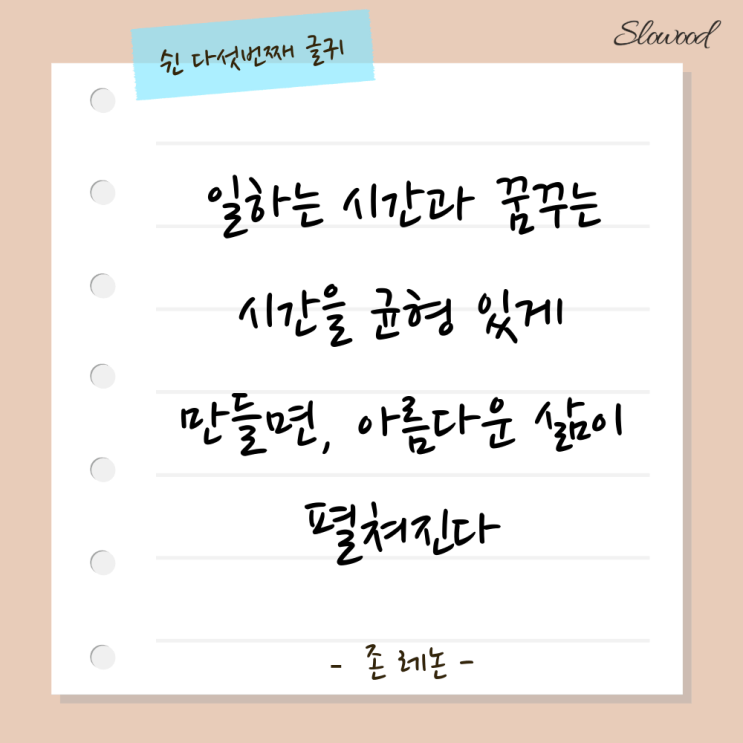 Slowood
쉰 다섯번째 글귀
일하는 시간과 꿈꾸는
시간을 균형 있게
만들면, 아름다운 삶이
펼쳐진다
- 존 레논 -